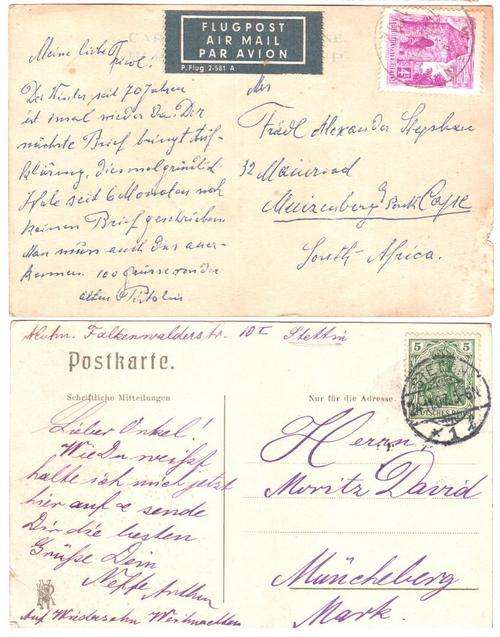 FLUGPOST
AIR MAIL
PAR AVION
P. Flug 2-581 A.
Meine liebe
seit 70 Jahren
ist mal wieder da. Der
nächste Brief bringt Auf-
klärung, diesmal gründlich
Habe seit 6 Monaten noch
keinen Brief geschrieben
Man muss auch das aner-
kennen. 100 Grüsse von der
alten
Alexander Stephan
32 Main road
Muizenberg South Cape
South-Africa.
Absn. Falkenwalderstr. 10 I Stettin
Postkarte.
Schriftliche Mitteilungen
Nur für die Adresse.
5 5
Lieber Onkel!
Wie Du weißt
halte ich mich jetzt
hier auf & sende
Dir die besten
Grüße Dein
Neffe Arthur
Auf Wiedersehn Weihnachten
Herrn
Moritz David
Müncheberg
Mark.